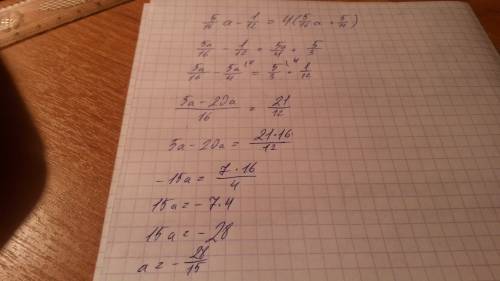 5/16 a - 1/12 = 4(5/16 a + 5/12)
5a/16 - 1/12 = 5a/4 + 5/3
5a/16 - 5a/4 \4 = 5/3 \4 + 1/12
5a - 20a/16 = 21/12
5a - 20a = 21·16/12
-15a = 7·16/4
15a = -7·4
15a = -28
a = -28/15